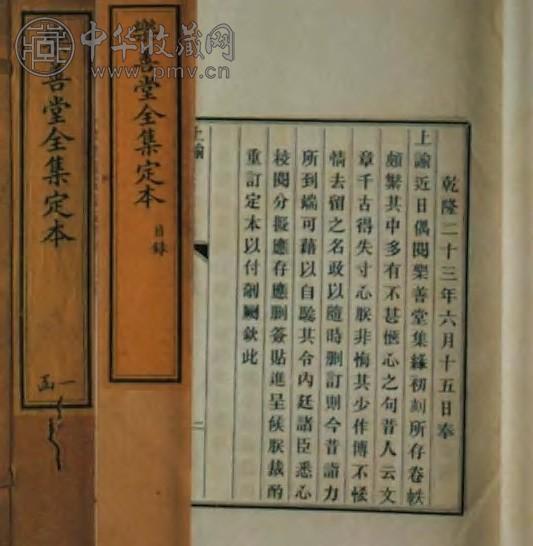 中华收藏网
www.pmv.cn
乾隆二十三年六月十五日奉
上諭近日偶閱樂善堂集緣初刻所存卷帙
頗繁其中多有不甚愜心之句昔人云文
章千古得失寸心朕非悔其少作博不恡
情去留之名敢以隨時刪訂則今昔詣力
所到端可藉以自驗其令內廷諸臣悉心
校閱分擬應存應刪簽貼進呈候朕裁酌
重訂定本以付剞劂欽此
上諭
二
樂善堂全集定本
目錄
善堂全集定本
一函